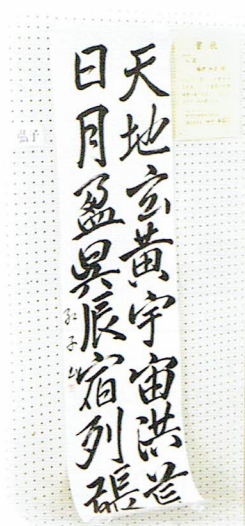 天地玄黄宇宙洪荒
日月盈昃辰宿列張
弘子
賞状